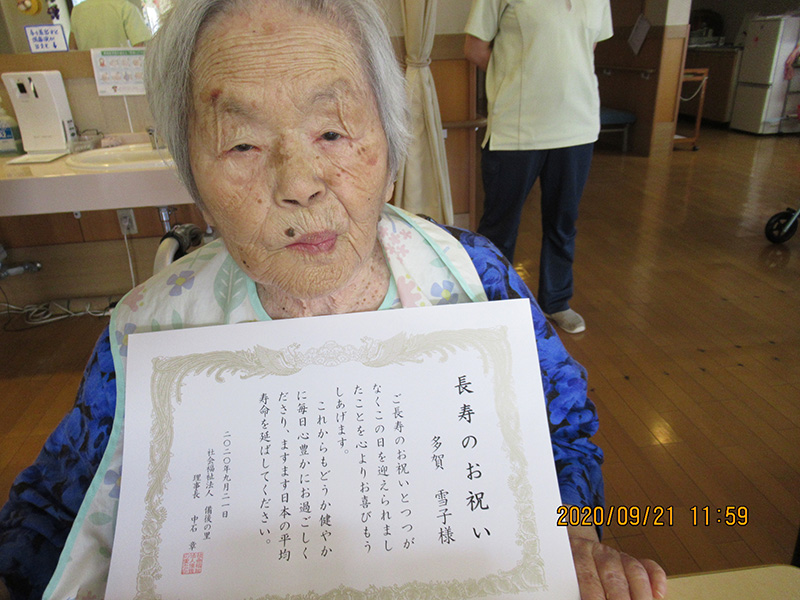 長寿のお祝い
多賀　雪子様
ご長寿のお祝いとつつが
なくこの日を迎えられまし
たことを心よりお喜びもう
しあげます。
これからもどうか健やか
に毎日心豊かにお過ごしく
ださり、ますます日本の平均
寿命を延ばしてください。
二〇二〇年九月二一日
社会福祉法人　備後の里
理事長　中石　章
2020/09/21 11:59